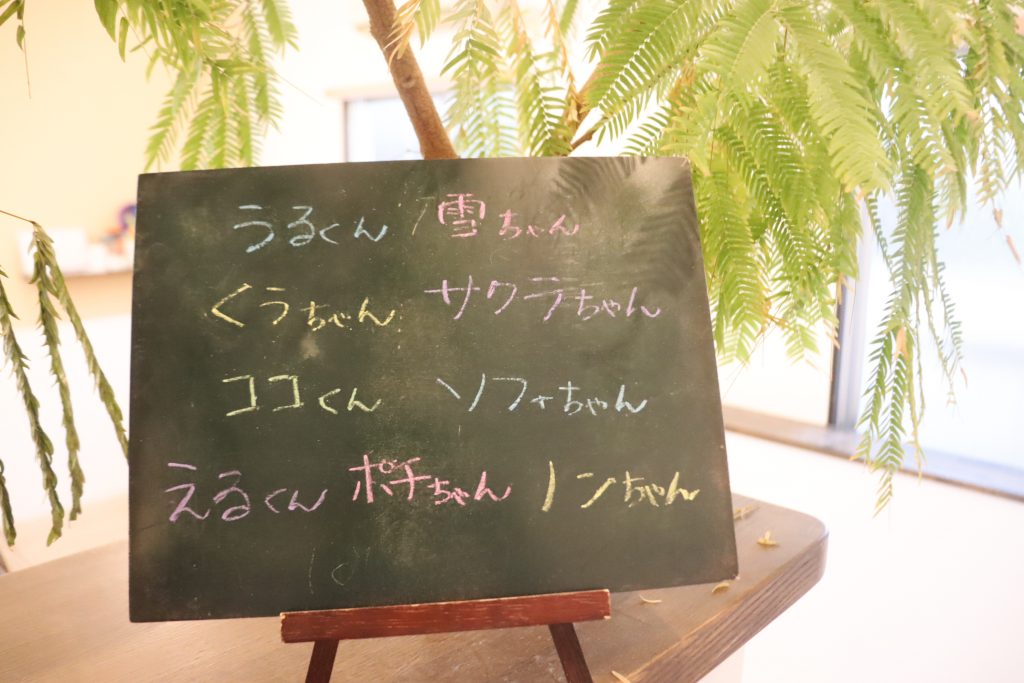 うるくん 雪ちゃん
くうちゃん サクラちゃん
ココくん ソフィちゃん
えるくん ポチちゃん ノンちゃん